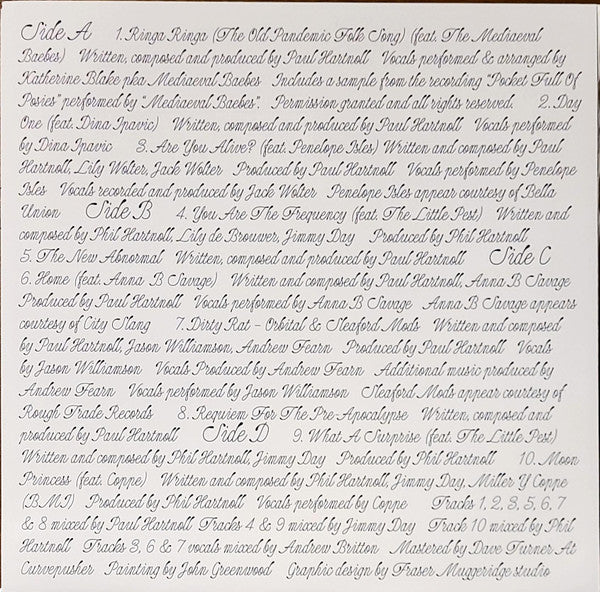 Side A 1. Ringa Ringa (The Old Pandemic Folk Song) (feat. The Mediaeval
Baebes) Written, composed and produced by Paul Hartnoll Vocals performed & arranged by
Katherine Blake pka Mediaeval Baebes Includes a sample from the recording "Pocket Full Of
Posies" performed by "Mediaeval Baebes". Permission granted and all rights reserved. 2. Day
One (feat. Dina Ipavic) Written, composed and produced by Paul Hartnoll Vocals performed
by Dina Ipavic 3. Are You Alive? (feat. Penelope Isles) Written and composed by Paul
Hartnoll, Lily Wolter, Jack Wolter Produced by Paul Hartnoll Vocals performed by Penelope
Isles Vocals recorded and produced by Jack Wolter Penelope Isles appear courtesy of Bella
Union Side B 4. You Are The Frequency (feat. The Little Pest) Written and
composed by Phil Hartnoll, Lily de Brouwer, Jimmy Day Produced by Phil Hartnoll
5. The New Abnormal Written, composed and produced by Paul Hartnoll Side C
6. Home (feat. Anna B Savage) Written and composed by Paul Hartnoll, Anna B Savage
Produced by Paul Hartnoll Vocals performed by Anna B Savage Anna B Savage appears
courtesy of City Slang 7. Dirty Rat - Orbital & Sleaford Mods Written and composed
by Paul Hartnoll, Jason Williamson, Andrew Fearn Produced by Paul Hartnoll Vocals
by Jason Williamson Vocals Produced by Andrew Fearn Additional music produced by
Andrew Fearn Vocals performed by Jason Williamson Sleaford Mods appear courtesy of
Rough Trade Records 8. Requiem For The Pre-Apocalypse Written, composed and
produced by Paul Hartnoll Side D 9. What A Surprise (feat. The Little Pest)
Written and composed by Phil Hartnoll, Jimmy Day Produced by Phil Hartnoll 10. Moon
Princess (feat. Coppe) Written and composed by Phil Hartnoll, Jimmy Day, Miller Y Coppe
(BMI) Produced by Phil Hartnoll Vocals performed by Coppe Tracks 1, 2, 3, 5, 6, 7
& 8 mixed by Paul Hartnoll Tracks 4 & 9 mixed by Jimmy Day Track 10 mixed by Phil
Hartnoll Tracks 3, 6 & 7 vocals mixed by Andrew Britton Mastered by Dave Turner At
Curvepusher Painting by John Greenwood Graphic design by Fraser Muggeridge studio